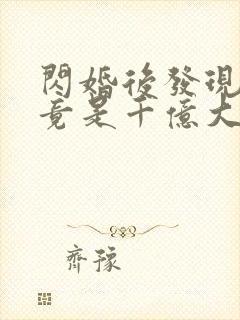 閃婚後發現
竟是千億大
齊豫